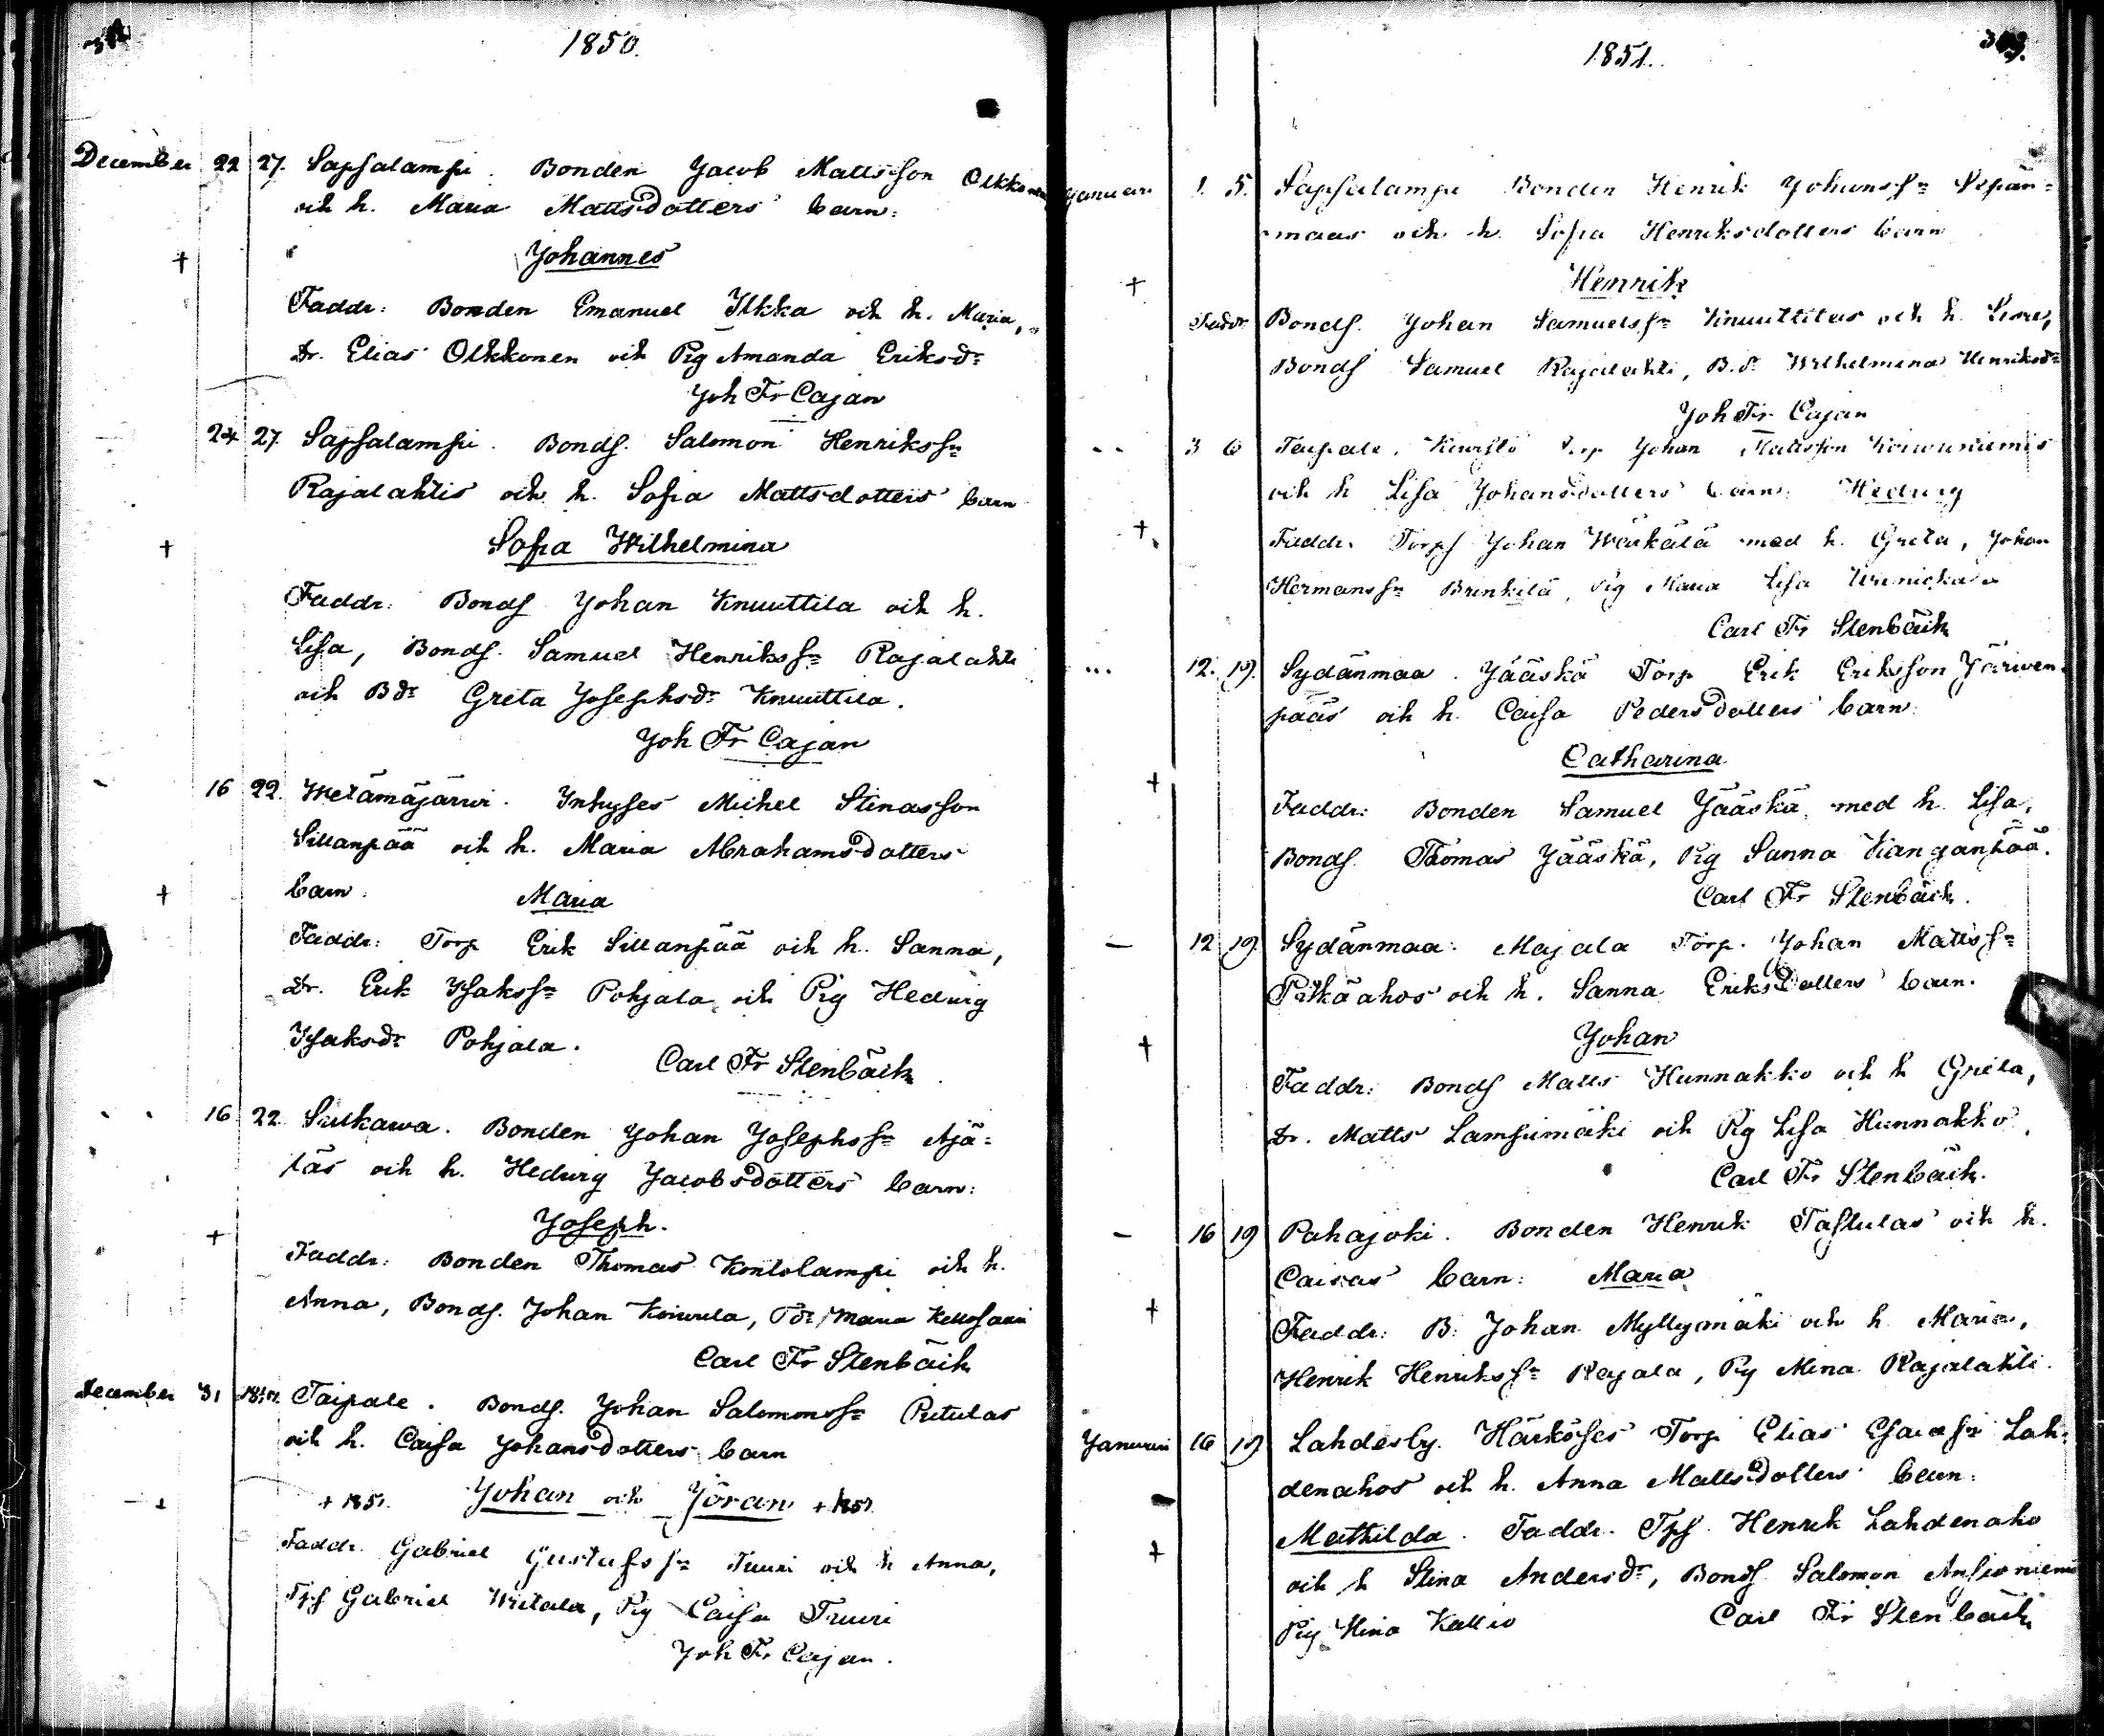 1850.
December 22 27. Sapsalampi. Bonden Jacob Mattsson Olkkonen
och h. Maria Mattsdotters barn:
Johannes
+
Faddr: Bonden Emanuel Ylkka och h. Maria,
Dr. Elias Olkkonen och Pig Amanda Eriksdr
Joh Fr Cajan
24 27 Sapsalampi. Bonds. Salomon Henrikssn
Rajalahtis och h. Sofia Mattsdotters barn
Sofia Wilhelmina
+
Faddr: Bonds Johan Knuuttila och h.
Lisa, Bonds. Samuel Henrikssn Rajalahti
och Bdr Greta Josephsdr Knuuttila.
Joh Fr Cajan
16 22. Wetämäjärwi. Inhyses Michel Stinasson
Sillanpää och h. Maria Abrahamsdotters
+ barn: Maria
Faddr: Torp Erik Sillanpää och h. Sanna,
Dr. Erik Isakssn Pohjala och Pig Hedwig
Isaksdr Pohjala.
Carl Fr Stenbäck
16 22 Sulkawa. Bonden Johan Josephssn Ajä-
läs och h. Hedwig Jacobsdotters barn:
Joseph.
+
Faddr: Bonden Thomas Kontolampi och h.
Anna, Bonds. Johan Koiwula, Maria
Carl Fr Stenbäck
December 31 Taipale. Bonds. Johan Salomonssn Pitulas
och h. Caisa Johansdotters barn
+ + 1851. Johan och Jöran + 1851.
Faddr. Gabriel Gustafssn Tuuri och h Anna,
Tps Gabriel Witala, Pig Caisa Tuuri
Joh Fr Cajan.
1851.
Januari 1. 5. Sapsalampi Bonden Henrik Johanssn Sepän-
maas och h. Sofia Henriksdotters barn
Henrik
+
Faddr Bonds. Johan Samuelssn Knuuttilas och h.
Bonds Samuel Rajalahti, B.dr Wilhelmina Henriksdr
Joh Fr Cajan
3 6 Taipale. Johan Mattsson Koiwuniemis
och h Lisa Johansdotters barn: Hedwig
+
Faddr. Torps Johan Wärkälä med h. Greta, Johan
Hermanssn Brinkilä, Pig Maria Lisa
Carl Fr Stenbäck
12. 19. Sydänmaa. Jääskä Torp Erik Eriksson Järwen-
pääs och h. Caisa Pedersdotters barn:
Catharina
+
Faddr: Bonden Samuel Jääskä, med h. Lisa,
Bonds. Thomas Jääskä, Pig Sanna Kanganpää.
Carl Fr Stenbäck.
12 19. Sydänmaa. Majala Torp. Johan Mattssn
Pitkäahos och h. Sanna Eriksdotters barn.
Johan
+
Faddr: Bonds Matts Hunnakko och h Greta,
Dr. Matts Lampimäki och Pig Lisa Hunnakko.
Carl Fr Stenbäck.
16 19 Pahajoki. Bonden Henrik Tastulas och h.
Caisas barn: Maria
+
Faddr: B: Johan Myllymäki och h Maria,
Henrik Henrikssn Rajala, Pig Mina Rajalahti.
Januari 16 19 Lahdesby. Härkösês Torp Elias Esaiassn Lah-
denahos och h. Anna Mattsdotters barn:
Mathilda. Faddr. Tps. Henrik Lahdenaho
+
och h Stina Andersdr, Bonds Salomon
Pig Mina Kallio
Carl Fr Stenbäck